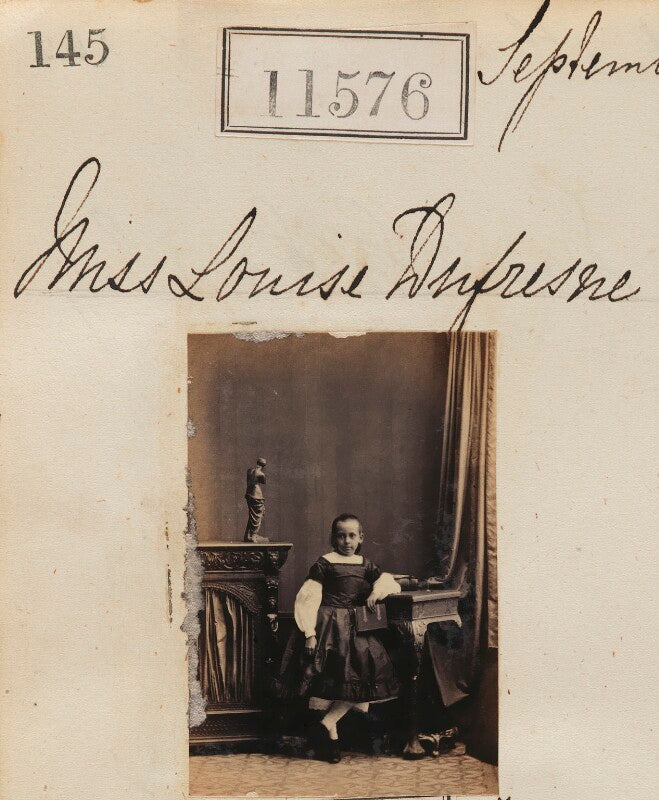 145
11576
Miss Louise Dufresne